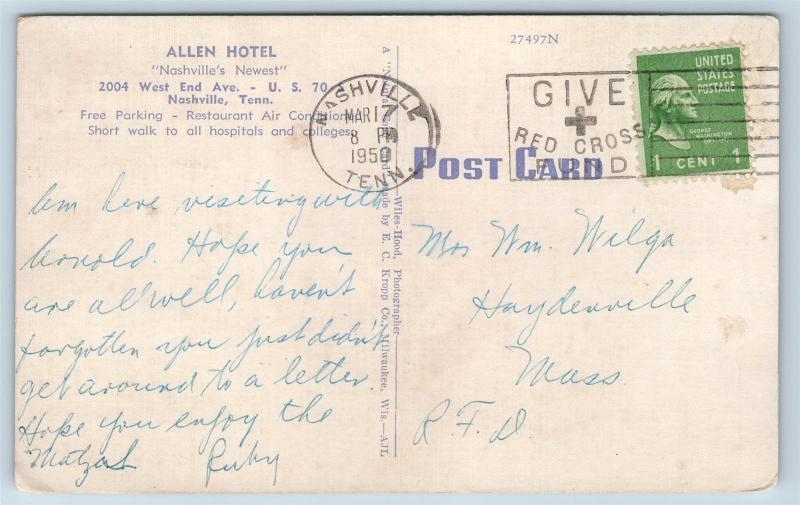 ALLEN HOTEL
"Nashville's Newest"
2004 West End Ave. - U. S. 70
Nashville, Tenn.
Free Parking - Restaurant Air Condition
Short walk to all hospitals and colleges
27497N
NASHVILLE
MAR 17
8 PM
1950
TENN.
GIVE
RED CROSS
FUND
UNITED
STATES
POSTAGE
GEORGE
WASHINGTON
1 CENT 1
POST CARD
Wiles-Hood, Photographer
made by E. C. Kropp Co., Milwaukee, Wis.—AJL
Am here visiting with
. Hope you
are all well, haven't
forgotten you just didn't
get around to a letter.
Hope you enjoy the
Ruby
Mrs Wm. Wilga
Haydenville
Mass.
R.F.D.